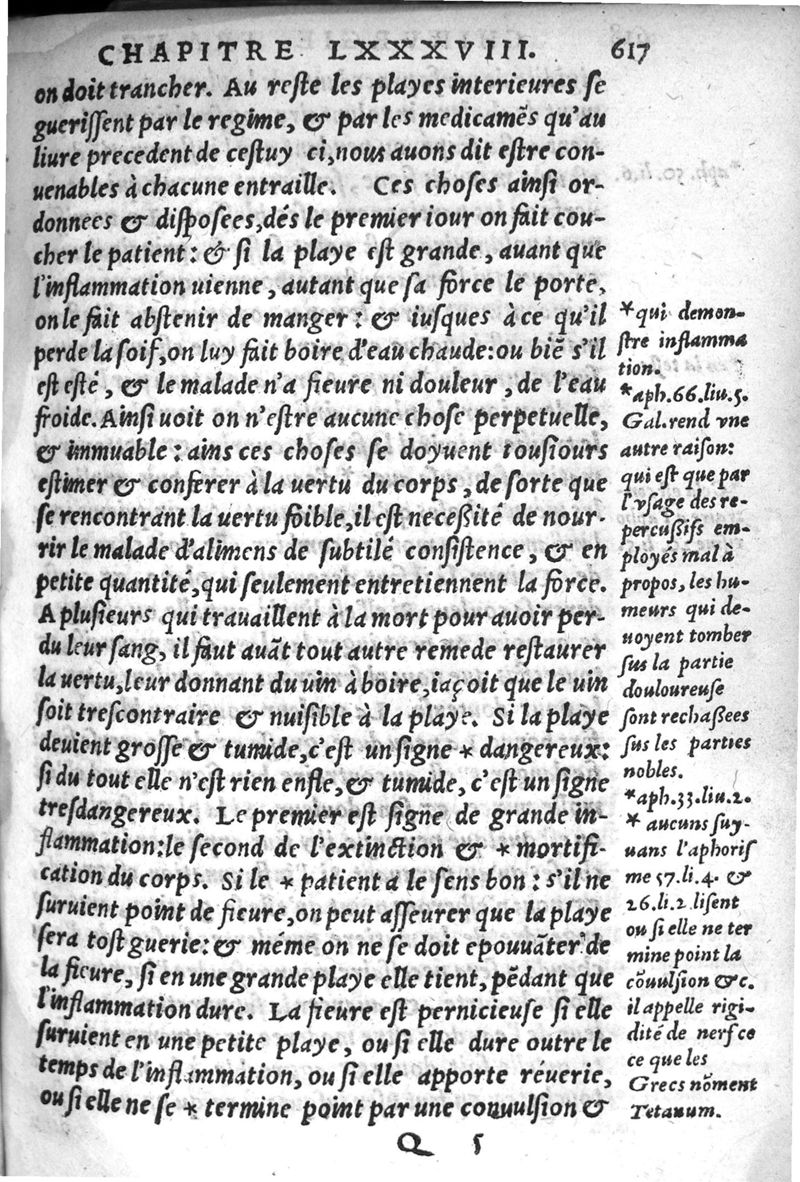 CHAPITRE LXXXVIII. 617
on doit trancher. Au reſte les playes interieures ſe
gueriſſent par le regime, & par les medicamẽs qu'au
liure precedent de ceſtuy ci, nous auons dit eſtre con-
uenables à chacune entraille. Ces choſes ainſi or-
donnees & diſpoſees, dés le premier iour on fait cou-
cher le patient: & ſi la playe eſt grande, auant que
l'inflammation uienne, autant que ſa force le porte,
on le fait abſtenir de manger: & iuſques à ce qu'il
perde la ſoif, on luy fait boire d'eau chaude: ou biẽ s'il
eſt eſté, & le malade n'a fieure ni douleur, de l'eau
froide. Ainſi uoit on n'eſtre aucune choſe perpetuelle,
& immuable: ains ces choſes ſe doyuent touſiours
eſtimer & conferer à la uertu du corps, de ſorte que
ſe rencontrant la uertu foible, il eſt neceßité de nour-
rir le malade d'alimens de ſubtilé conſiſtence, & en
petite quantité, qui ſeulement entretiennent la force.
A pluſieurs qui trauaillent à la mort pour auoir per-
du leur ſang, il faut auãt tout autre remede reſtaurer
la uertu, leur donnant du uin à boire, iaçoit que le uin
ſoit treſcontraire & nuiſible à la playe. Si la playe
deuient groſſe & tumide, c'eſt un ſigne * dangereux:
ſi du tout elle n'eſt rien enfle, & tumide, c'eſt un ſigne
tresdangereux. Le premier eſt ſigne de grande in-
flammation: le ſecond de l'extinction & * mortifi-
cation du corps. Si le * patient a le ſens bon: s'il ne
ſuruient point de fieure, on peut aſſeurer que la playe
ſera toſt guerie: & méme on ne ſe doit epouuãter de
la fieure, ſi en une grande playe elle tient, pẽdant que
l'inflammation dure. La fieure eſt pernicieuse ſi elle
ſuruient en une petite playe, ou ſi elle dure outre le
temps de l'inflammation, ou ſi elle apporte réuerie,
ou ſi elle ne ſe * termine point par une conuulſion &
Q 5
*qui demon-
ſtre inflamma
tion.
*aph.66.liu.5.
Gal. rend vne
autre raiſon:
qui eſt que par
l'vſage des re-
percußifs em-
ployés mal à
propos, les hu-
meurs qui de-
uoyent tomber
ſus la partie
douloureuſe
ſont rechaßees
ſus les parties
nobles.
*aph.33.liu.2.
* aucuns ſuy-
uans l'aphoriſ
me 57.li.4. &
26.li.2 liſent
ou ſi elle ne ter
mine point la
cõuulſion &c.
il appelle rigi-
dité de nerf ce
ce que les
Grecs nõment
Tetanum.